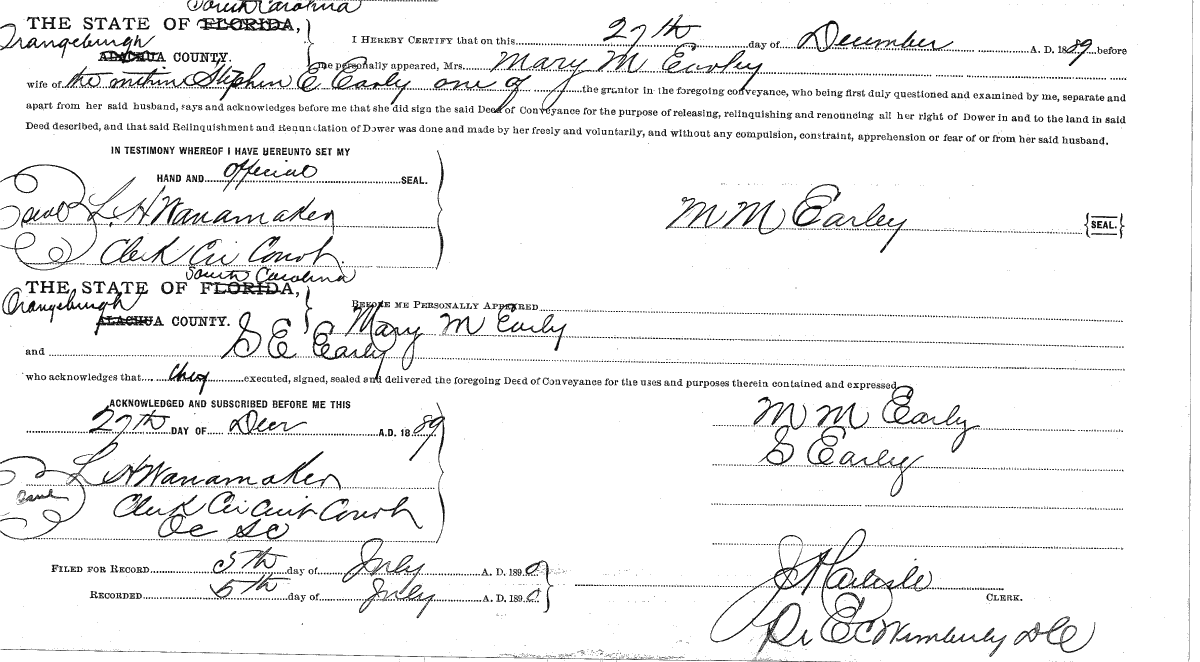 South Carolina
THE STATE OF FLORIDA,
Orangeburgh
ALACHUA COUNTY.
I HEREBY CERTIFY that on this 27th day of December A. D. 1889 before
me personally appeared, Mrs. Mary M Earley
wife of the within Stephen E Early one of the grantor in the foregoing conveyance, who being first duly questioned and examined by me, separate and
apart from her said husband, says and acknowledges before me that she did sign the said Deed of Conveyance for the purpose of releasing, relinquishing and renouncing all her right of Dower in and to the land in said
Deed described, and that said Relinquishment and Renunciation of Dower was done and made by her freely and voluntarily, and without any compulsion, constraint, apprehension or fear of or from her said husband.
IN TESTIMONY WHEREOF I HAVE HEREUNTO SET MY
HAND AND official SEAL.
Seal L H Wanamaker
M M Earley {SEAL.}
Clerk Cir Court.
South Carolina
THE STATE OF FLORIDA,
Orangeburgh
ALACHUA COUNTY.
BEFORE ME PERSONALLY APPEARED
Mary M Early
and S E Early
who acknowledges that they executed, signed, sealed and delivered the foregoing Deed of Conveyance for the uses and purposes therein contained and expressed
ACKNOWLEDGED AND SUBSCRIBED BEFORE ME THIS
27th DAY OF Decr A.D. 1889
M M Early
S Early
L H Wanamaker
Seal
Clerk Circuit Court
OC SC
FILED FOR RECORD 5th day of July A. D. 1890
RECORDED 5th day of July A. D. 1890
J A Carlisle
CLERK.
Pr E C Wimberly DC